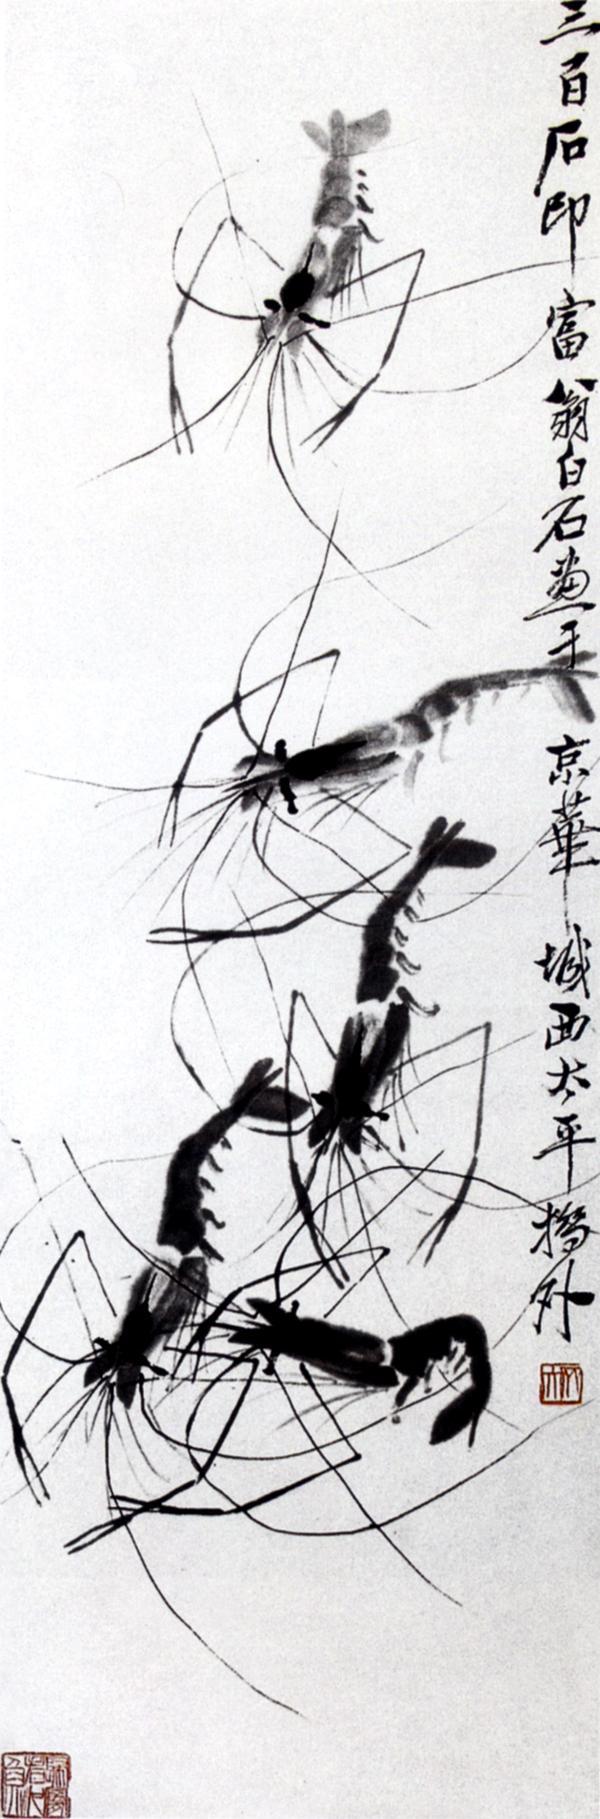 三百石印富翁白石畫于京華城西太平橋外
木人